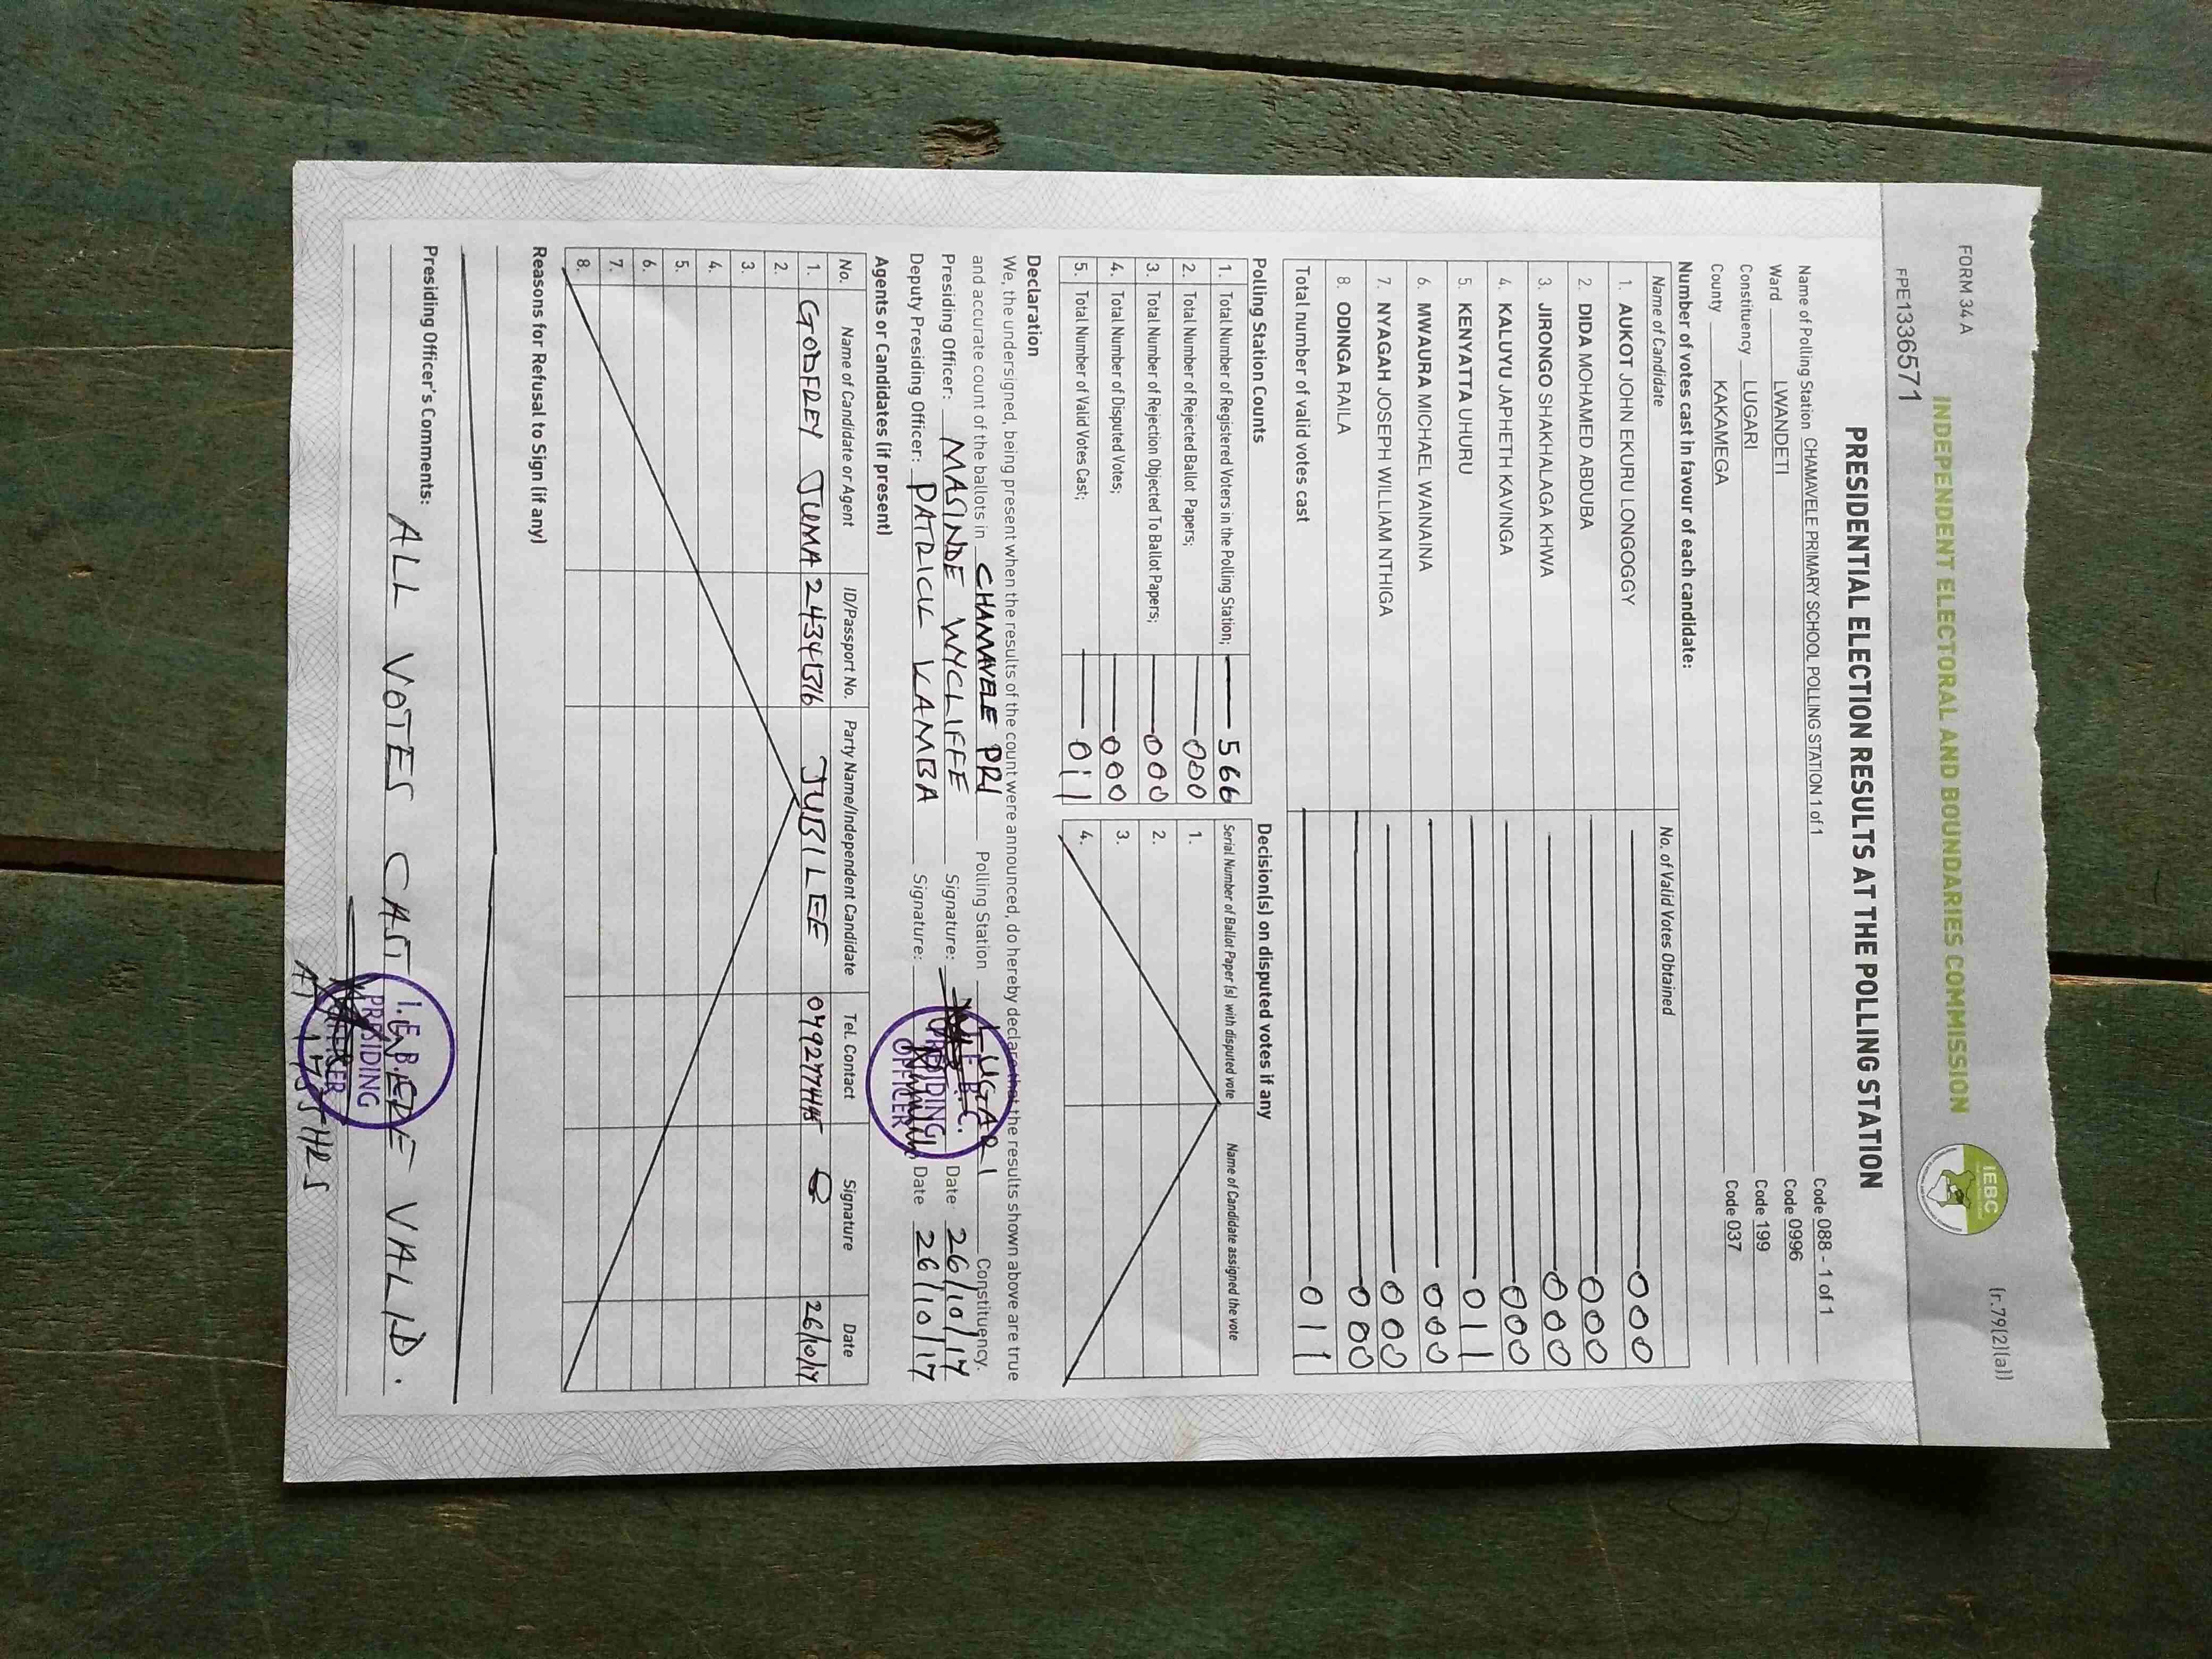 FORM 34 A
(r.79(2)(a))
INDEPENDENT ELECTORAL AND BOUNDARIES COMMISSION
IEBC
FPE1336571
PRESIDENTIAL ELECTION RESULTS AT THE POLLING STATION
Name of Polling Station CHAMAVELE PRIMARY SCHOOL POLLING STATION 1 of 1 Code 088 - 1 of 1
Ward LWANDETI Code 0996
Constituency LUGARI Code 199
County KAKAMEGA Code 037
Number of votes cast in favour of each candidate:
Name of Candidate No. of Valid Votes Obtained
1. AUKOT JOHN EKURU LONGOGGY 000
2. DIDA MOHAMED ABDUBA 000
3. JIRONGO SHAKHALAGA KHWA 000
4. KALUYU JAPHETH KAVINGA 000
5. KENYATTA UHURU 011
6. MWAURA MICHAEL WAINAINA 000
7. NYAGAH JOSEPH WILLIAM NTHIGA 000
8. ODINGA RAILA 000
Total number of valid votes cast 011
Polling Station Counts
1. Total Number of Registered Voters in the Polling Station; 566
2. Total Number of Rejected Ballot Papers; 000
3. Total Number of Rejection Objected To Ballot Papers; 000
4. Total Number of Disputed Votes; 000
5. Total Number of Valid Votes Cast; 011
Decision(s) on disputed votes if any
Serial Number of Ballot Paper (s) with disputed vote Name of Candidate assigned the vote
1.
2.
3.
4.
Declaration
We, the undersigned, being present when the results of the count were announced, do hereby declare that the results shown above are true
and accurate count of the ballots in CHAMAVELE PRI Polling Station LUGARI Constituency.
Presiding Officer: MASINDE WYCLIFFE Signature: Date 26/10/17
Deputy Presiding Officer: PATRICK KAMBA Signature: Date 26/10/17
PRESIDING
OFFICER
Agents or Candidates (if present)
No. Name of Candidate or Agent ID/Passport No. Party Name/Independent Candidate Tel. Contact Signature Date
1. GODFREY JUMA JUBILEE 26/10/17
2.
3.
4.
5.
6.
7.
8.
Reasons for Refusal to Sign (if any)
Presiding Officer's Comments: ALL VOTES CAST WERE VALID.
I.E.B.C.
PRESIDING
OFFICER
AT 1735HRS